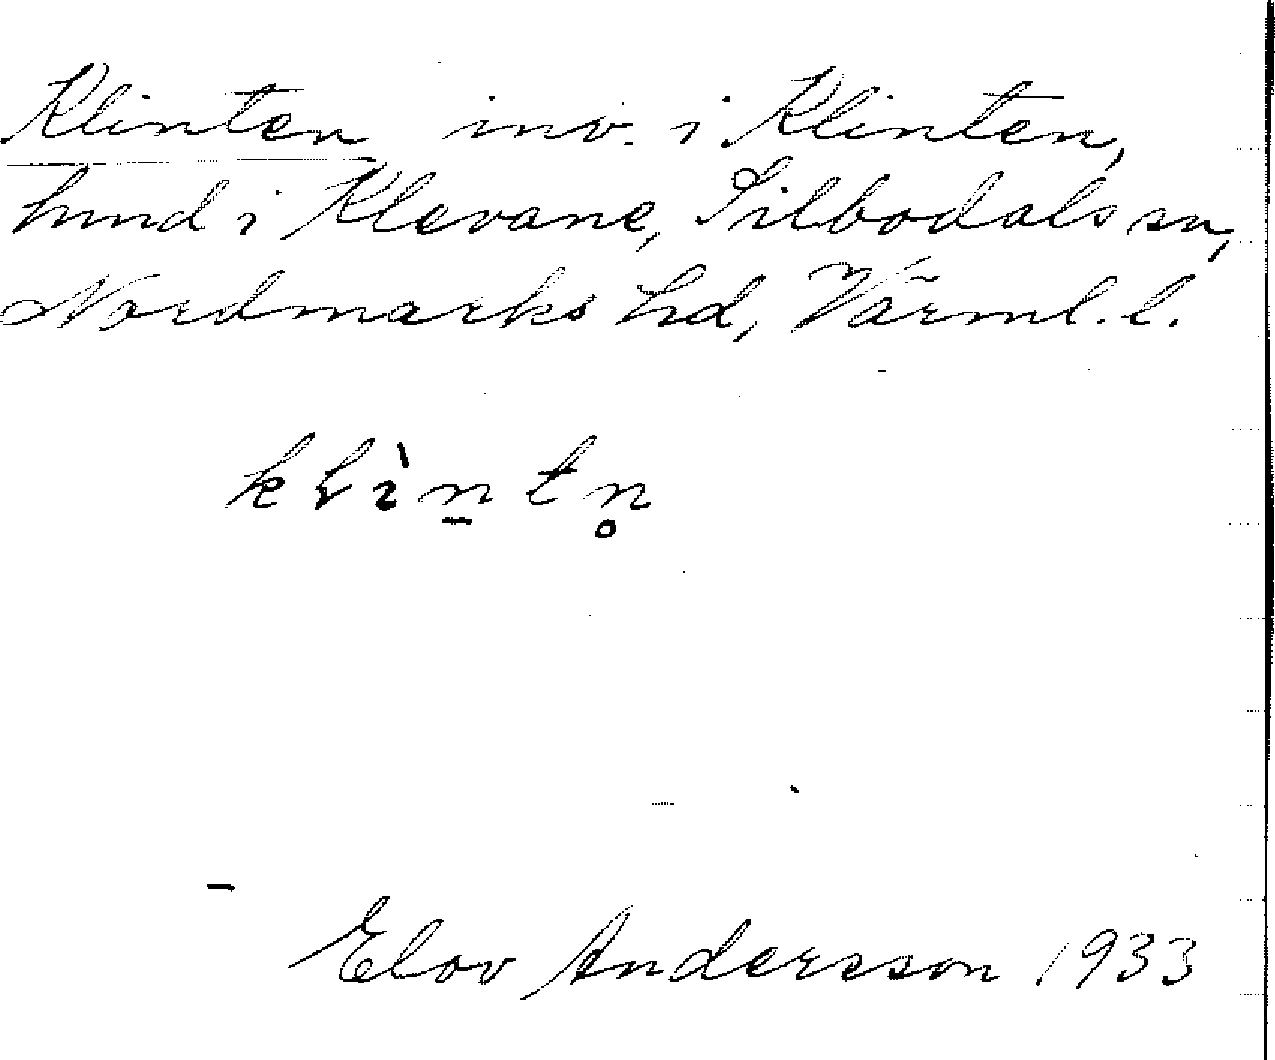 Klinten inv. i Klinten,
hmd i Klevane, Silbodals sn,
Nordmarks hd, Värml. l.
Elov Andersson 1933